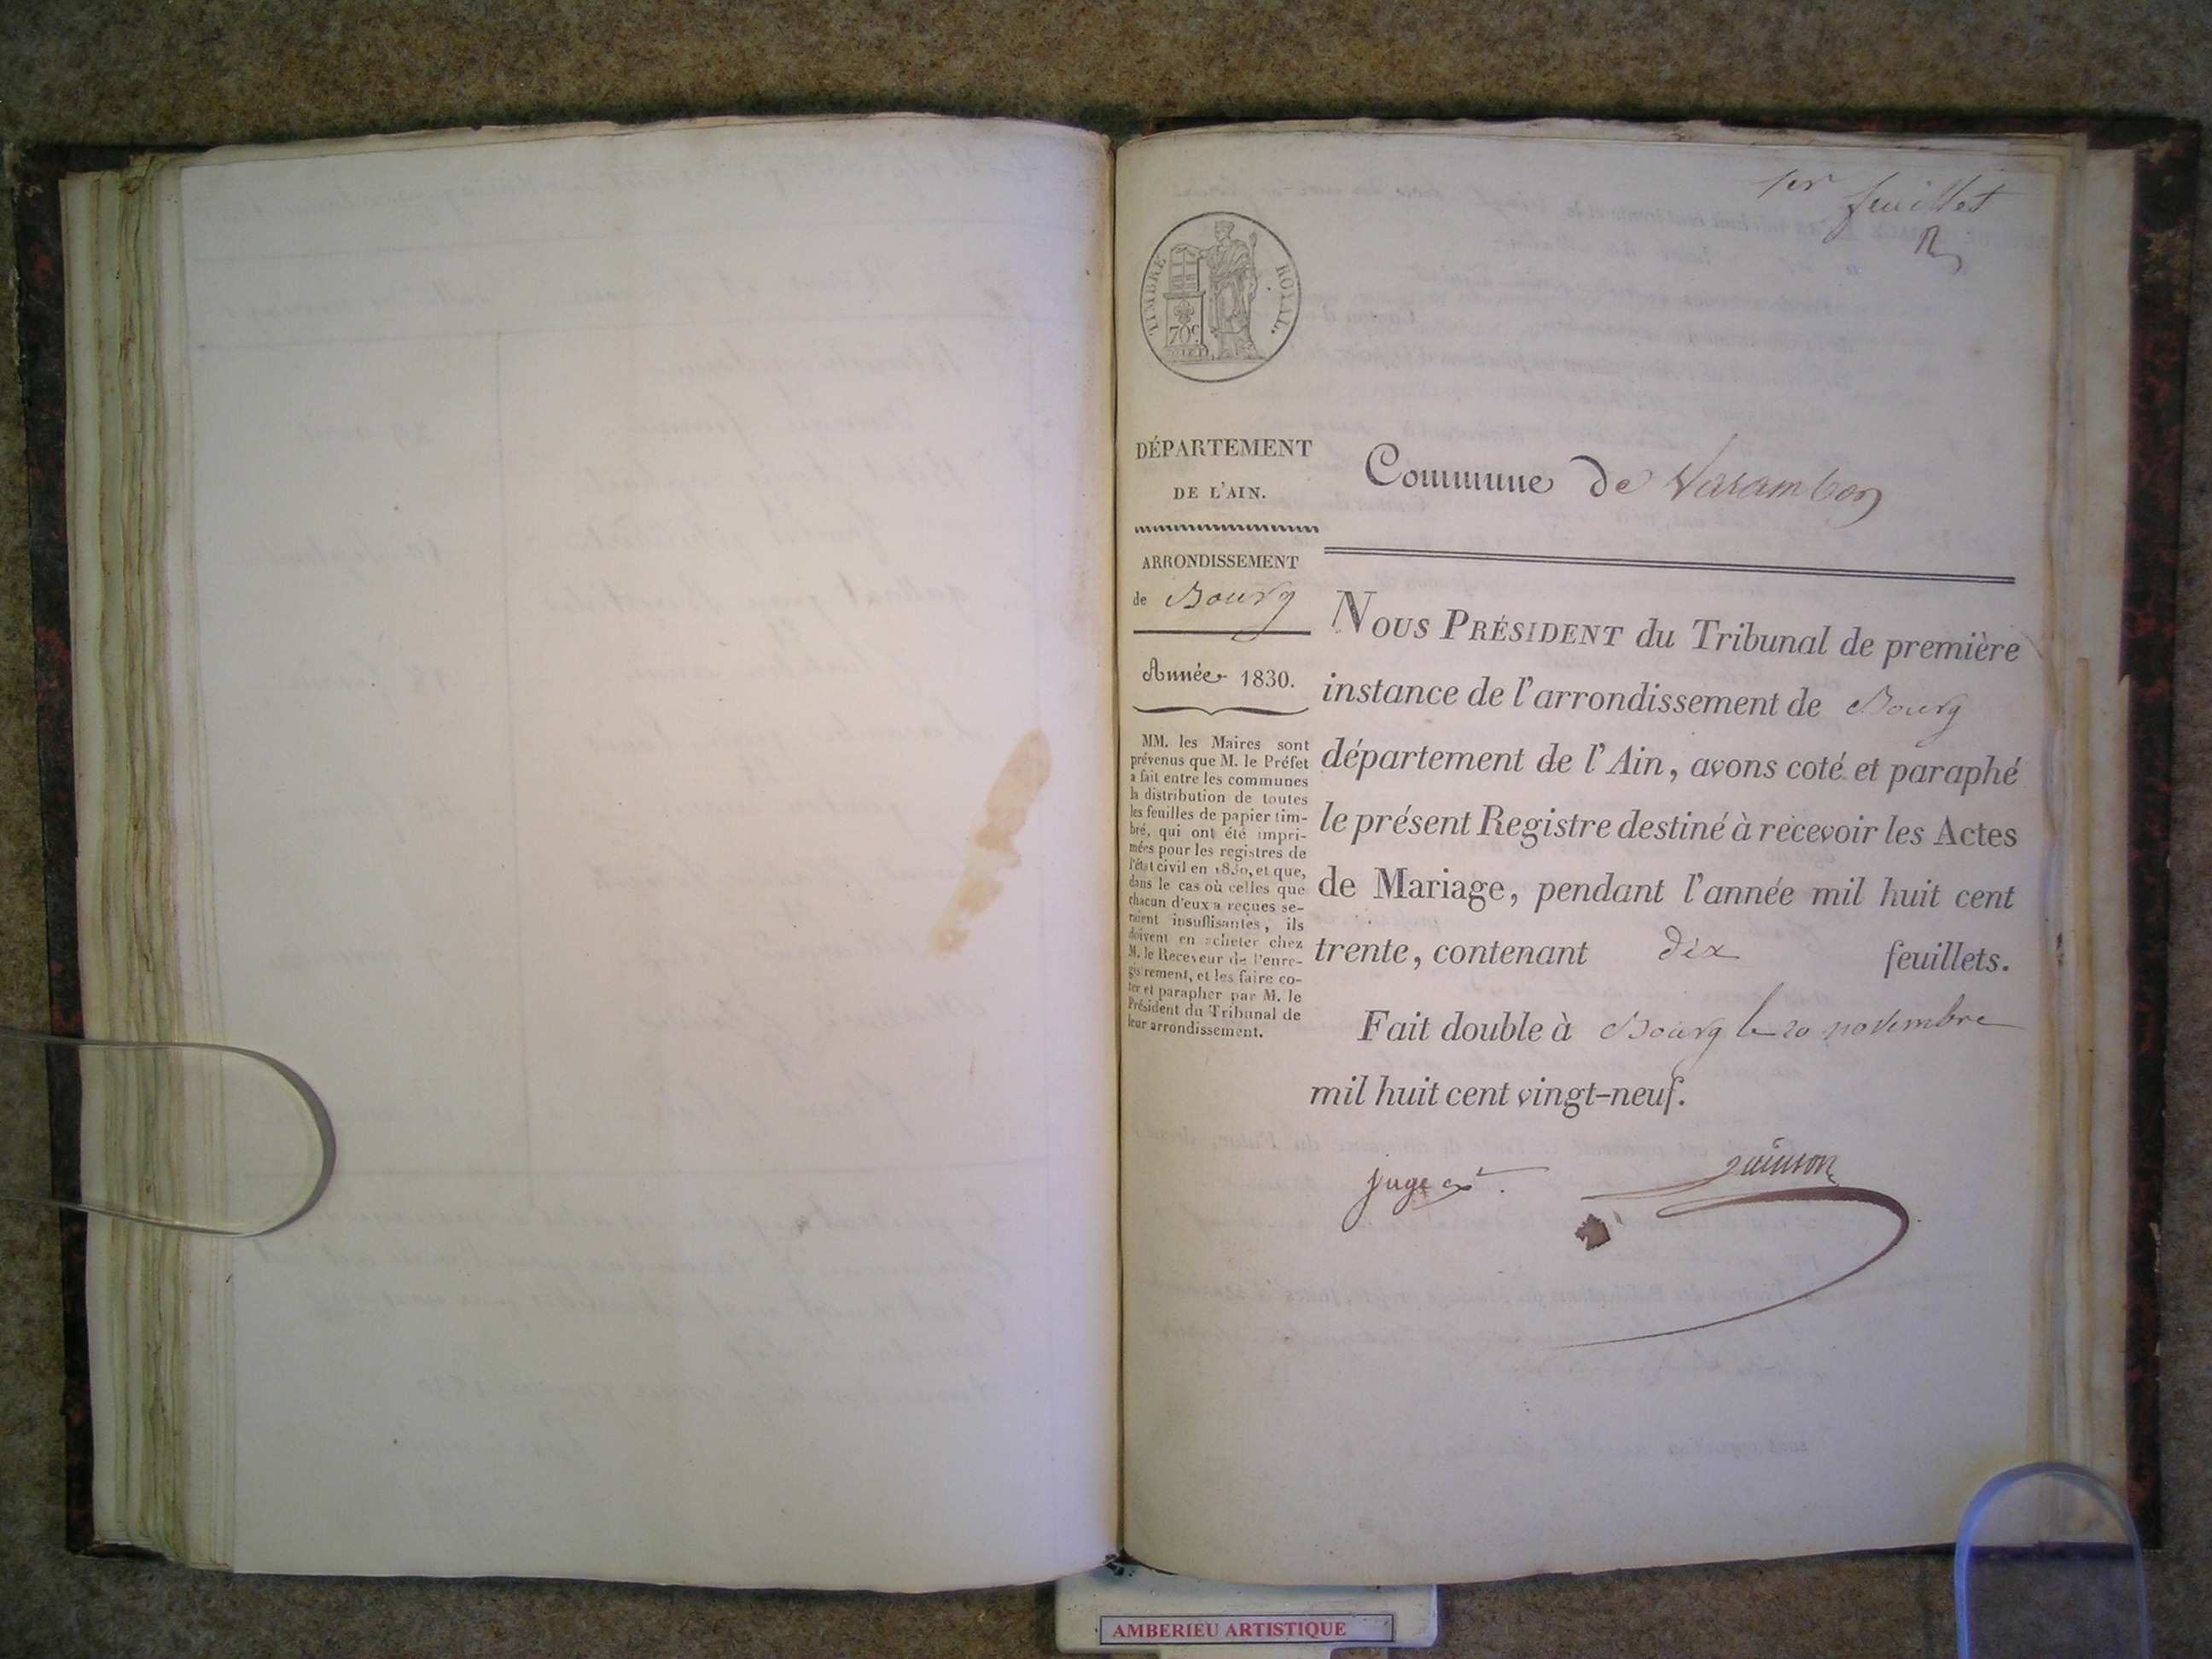 1er feuillet
TIMBRE ROYAL.
70c
DÉPARTEMENT
DE L'AIN.
ARRONDISSEMENT
de Bourg
Année 1830.
MM. les Maires sont
prévenus que M. le Préfet
a fait entre les communes
la distribution de toutes
les feuilles de papier tim-
bré, qui ont été impri-
mées pour les registres de
l'état civil en 1830, et que,
dans le cas où celles que
chacun d'eux a reçues se-
raient insuffisantes, ils
doivent en acheter chez
M. le Receveur de l'enre-
gistrement, et les faire co-
ter et parapher par M. le
Président du Tribunal de
leur arrondissement.
Commune de Varambon
NOUS PRÉSIDENT du Tribunal de première
instance de l'arrondissement de Bourg
département de l'Ain, avons coté et paraphé
le présent Registre destiné à recevoir les Actes
de Mariage, pendant l'année mil huit cent
trente, contenant dix feuillets.
Fait double à Bourg le 20 novembre
mil huit cent vingt-neuf.
juge
AMBERIEU ARTISTIQUE